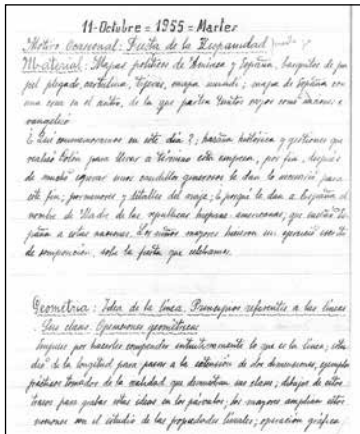 11-Octubre = 1955 = Martes
Motivo Ocasional: Fiesta de la Hispanidad
Material: Mapas políticos de América y España, barquitos de pa
pel plegado, cartulina, tijeras, mapa mundi; mapa de España con
una cruz en el centro, de la que parten tantos rayos como naciones
evangelizó
¿Qué conmemoramos en este día?; hazaña histórica y gestiones que
realizó Colón para llevar a término esta empresa, por fin, después
de mucho esperar unos generosos le dan lo necesario para
este fin; pormenores y detalles del viaje; ¿porqué le dan a España el
nombre de Madre de las repúblicas hispano-americanas, que España
a estas naciones. Los niños mayores hacen un ejercicio escrito
de composición, sobre la fiesta que celebramos.
Geometría: Idea de la línea. Principios referentes a las líneas
Sus clases. Operaciones geométricas
Empiezo por hacerles comprender intuitivamente lo que es la línea; estu
dio de la longitud para pasar a la extensión de dos dimensiones, ejemplos
prácticos tomados de la realidad que demuestran sus clases; dibujos de estos
trazos para grabar estas ideas en los párvulos; los mayores amplían estas
nociones con el estudio de las propiedades lineales; operación gráfica